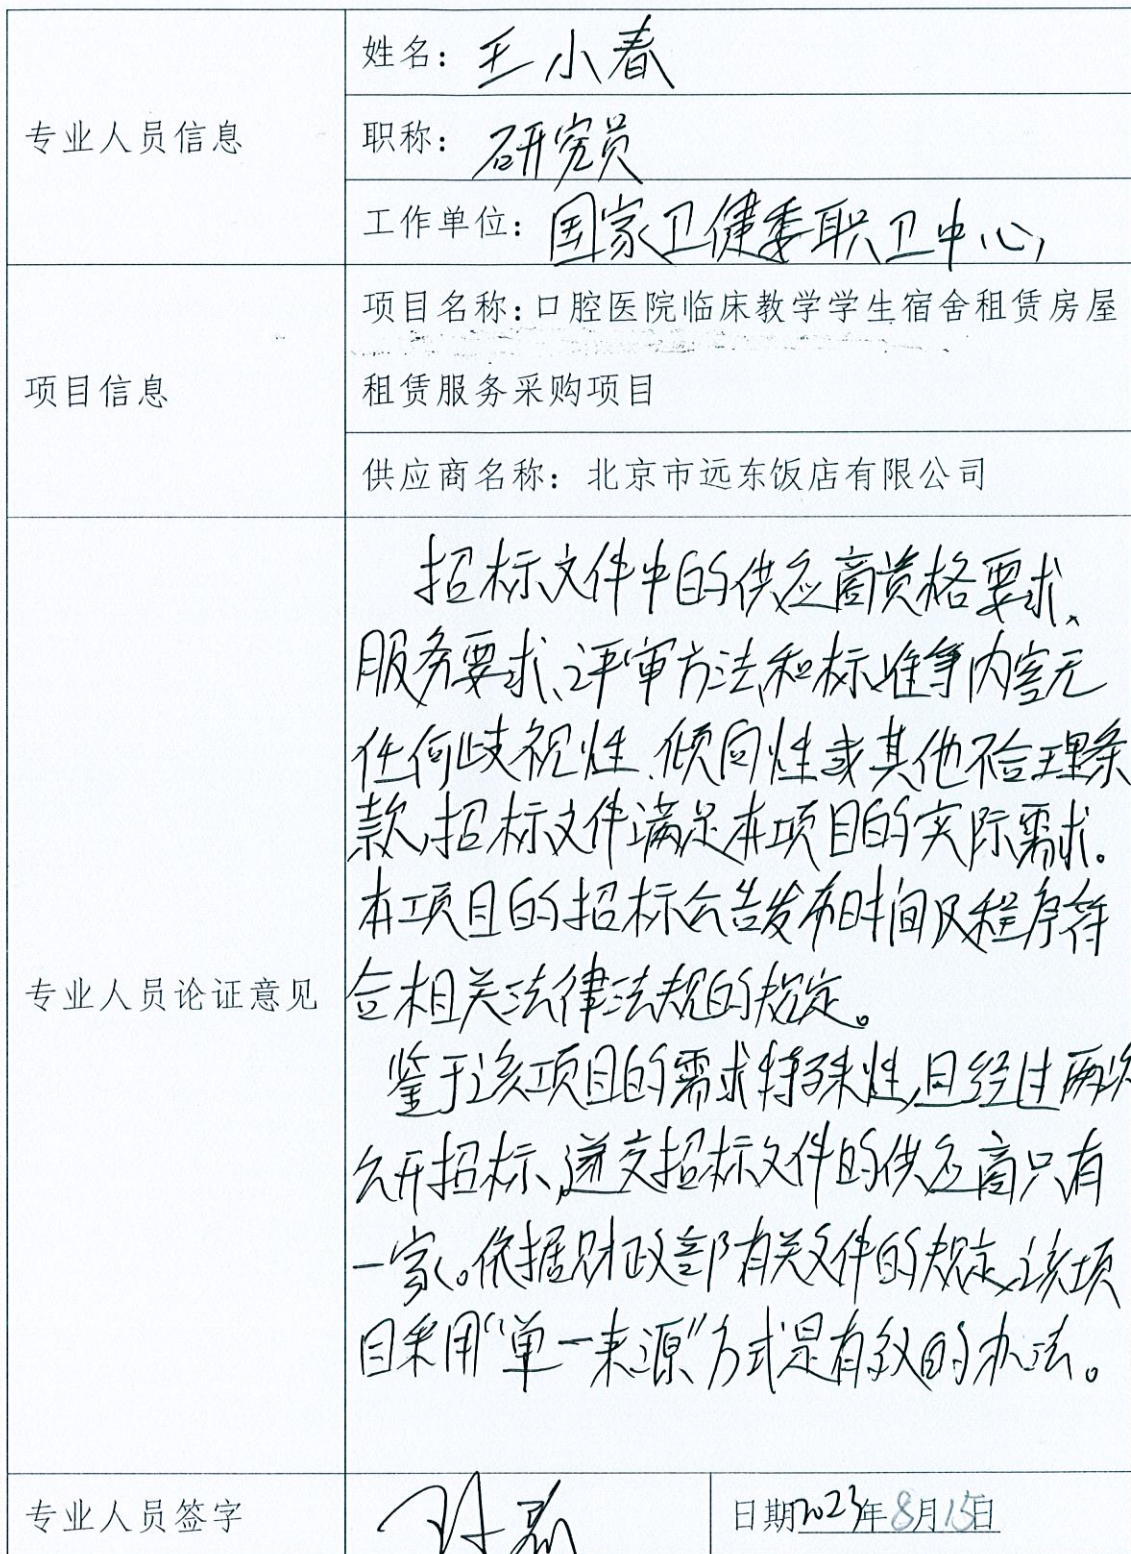 专业人员信息
姓名：王小春
职称：研究员
工作单位：国家卫健委职卫中心
项目信息
项目名称：口腔医院临床教学学生宿舍租赁房屋
租赁服务采购项目
供应商名称：北京市远东饭店有限公司
专业人员论证意见
招标文件中的供应商资格要求、
服务要求、评审方法和标准等内容无
任何歧视性、倾向性或其他不合理条
款，招标文件满足本项目的实际需求。
本项目的招标公告发布时间及程序符
合相关法律法规的规定。
鉴于该项目的需求特殊性，且经过两次
公开招标，递交招标文件的供应商只有
一家。依据财政部有关文件的规定，该项
目采用“单一来源”方式是有效的办法。
专业人员签字
日期2023年8月15日